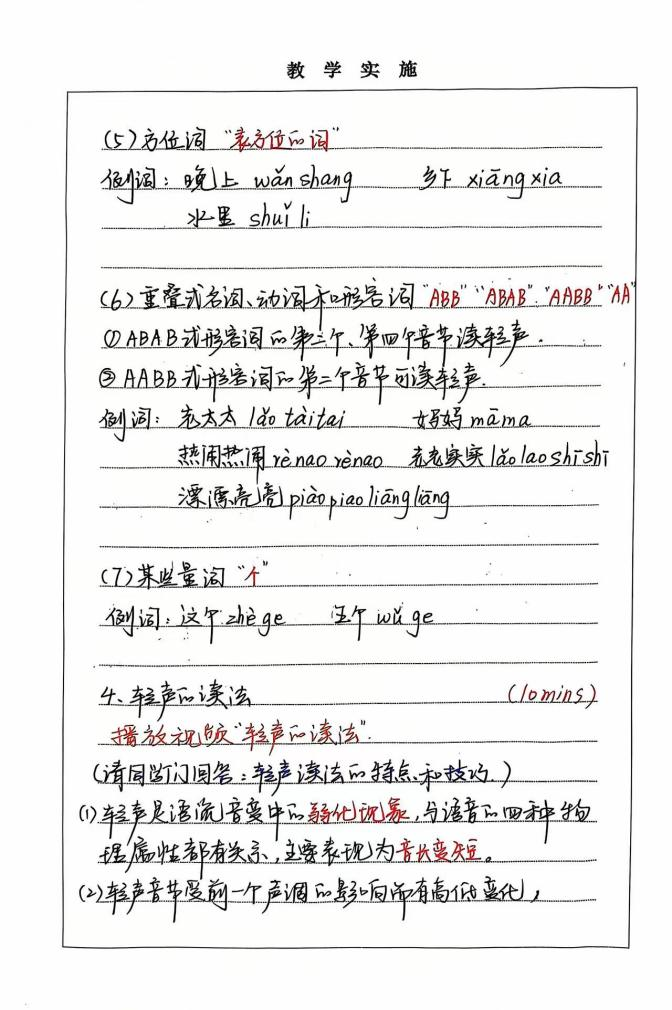 教 学 实 施
(5)方位词 "表方位的词"
例词：晚上 wǎnshang 乡下 xiāngxia
水里 shuǐ li
(6)重叠式名词、动词和形容词 "ABB" "ABAB". "AABB" "AA"
①ABAB式形容词的第二个、第四个音节读轻声.
②AABB式形容词的第二个音节可读轻声.
例词：老太太 lǎo tàitai 妈妈 māma
热闹热闹 rènao rènao 老老实实 lǎo lao shī shī
漂漂亮亮 piào piao liāng liāng
(7)某些量词 "个"
例词：这个 zhè ge 五个 wǔ ge
4、轻声的读法 (10mins)
播放视频"轻声的读法".
(请同学们回答：轻声读法的特点和技巧.)
(1)轻声是语流音变中的弱化现象，与语音的四种物
理属性都有关系，主要表现为音长变短。
(2)轻声音节受前一个声调的影响而有高低变化，